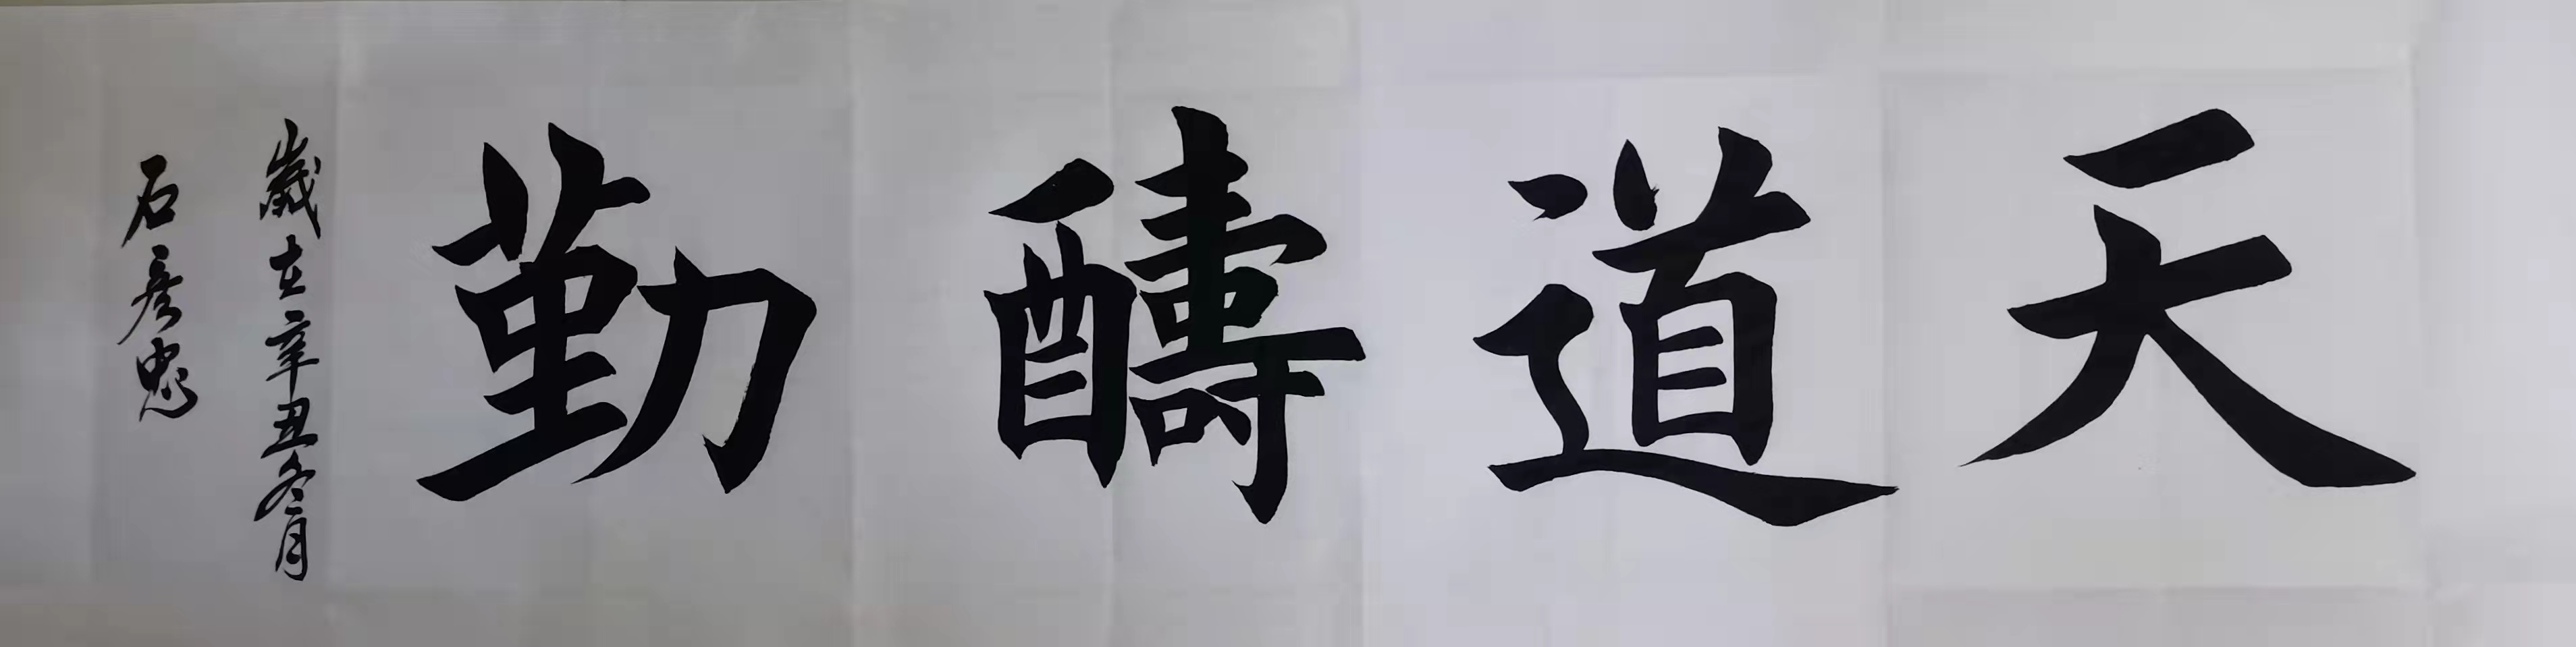 天道醻勤
歲在辛丑冬月
石彥忠